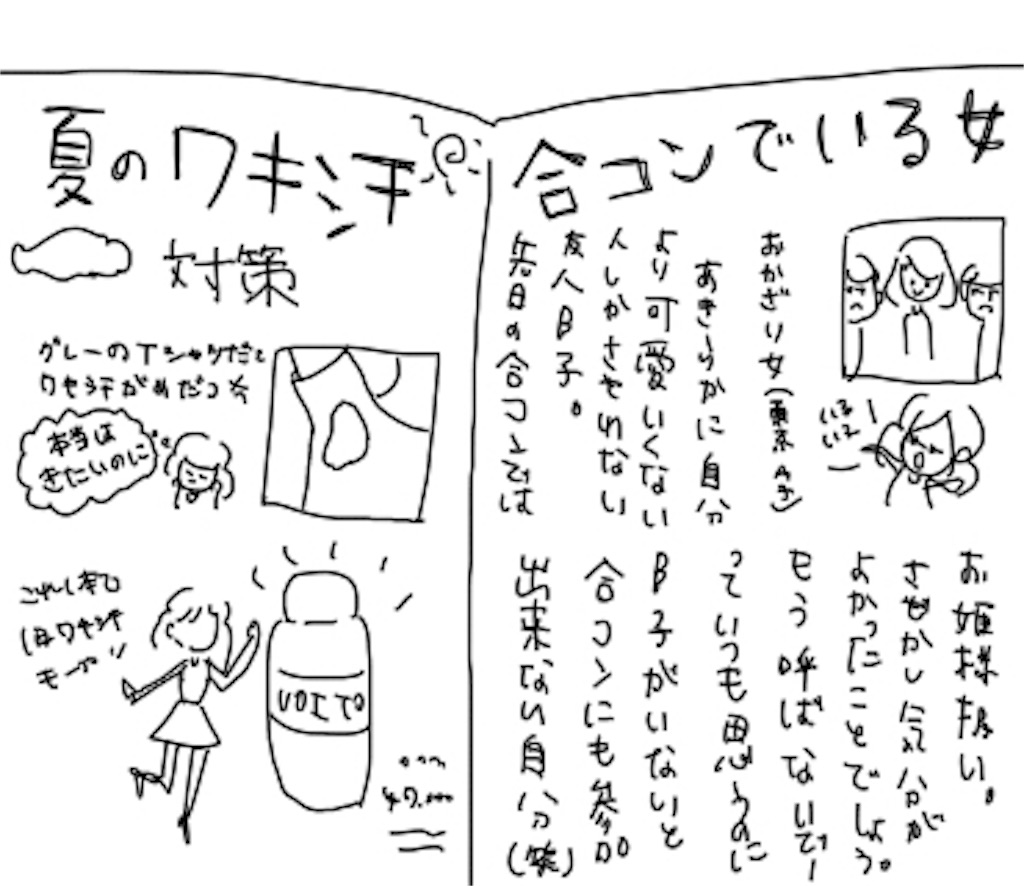 合コンでいる女
いる
いる！
おかざり女(東京 A子)
あきらかに自分
より可愛いくない
人しかさそわない
友人B子。
先日の合コンでは
お姫様扱い。
さぞかし気分が
よかったことでしょう。
もう呼ばないぞー
っていつも思うのに
B子がいないと
合コンにも参加
出来ない自分(笑)
夏のワキ汗
対策
グレーのTシャツだと
ワキ汗がめだつ
本当は
きたいのに
これ1本で
1日ワキ汗
VOITO